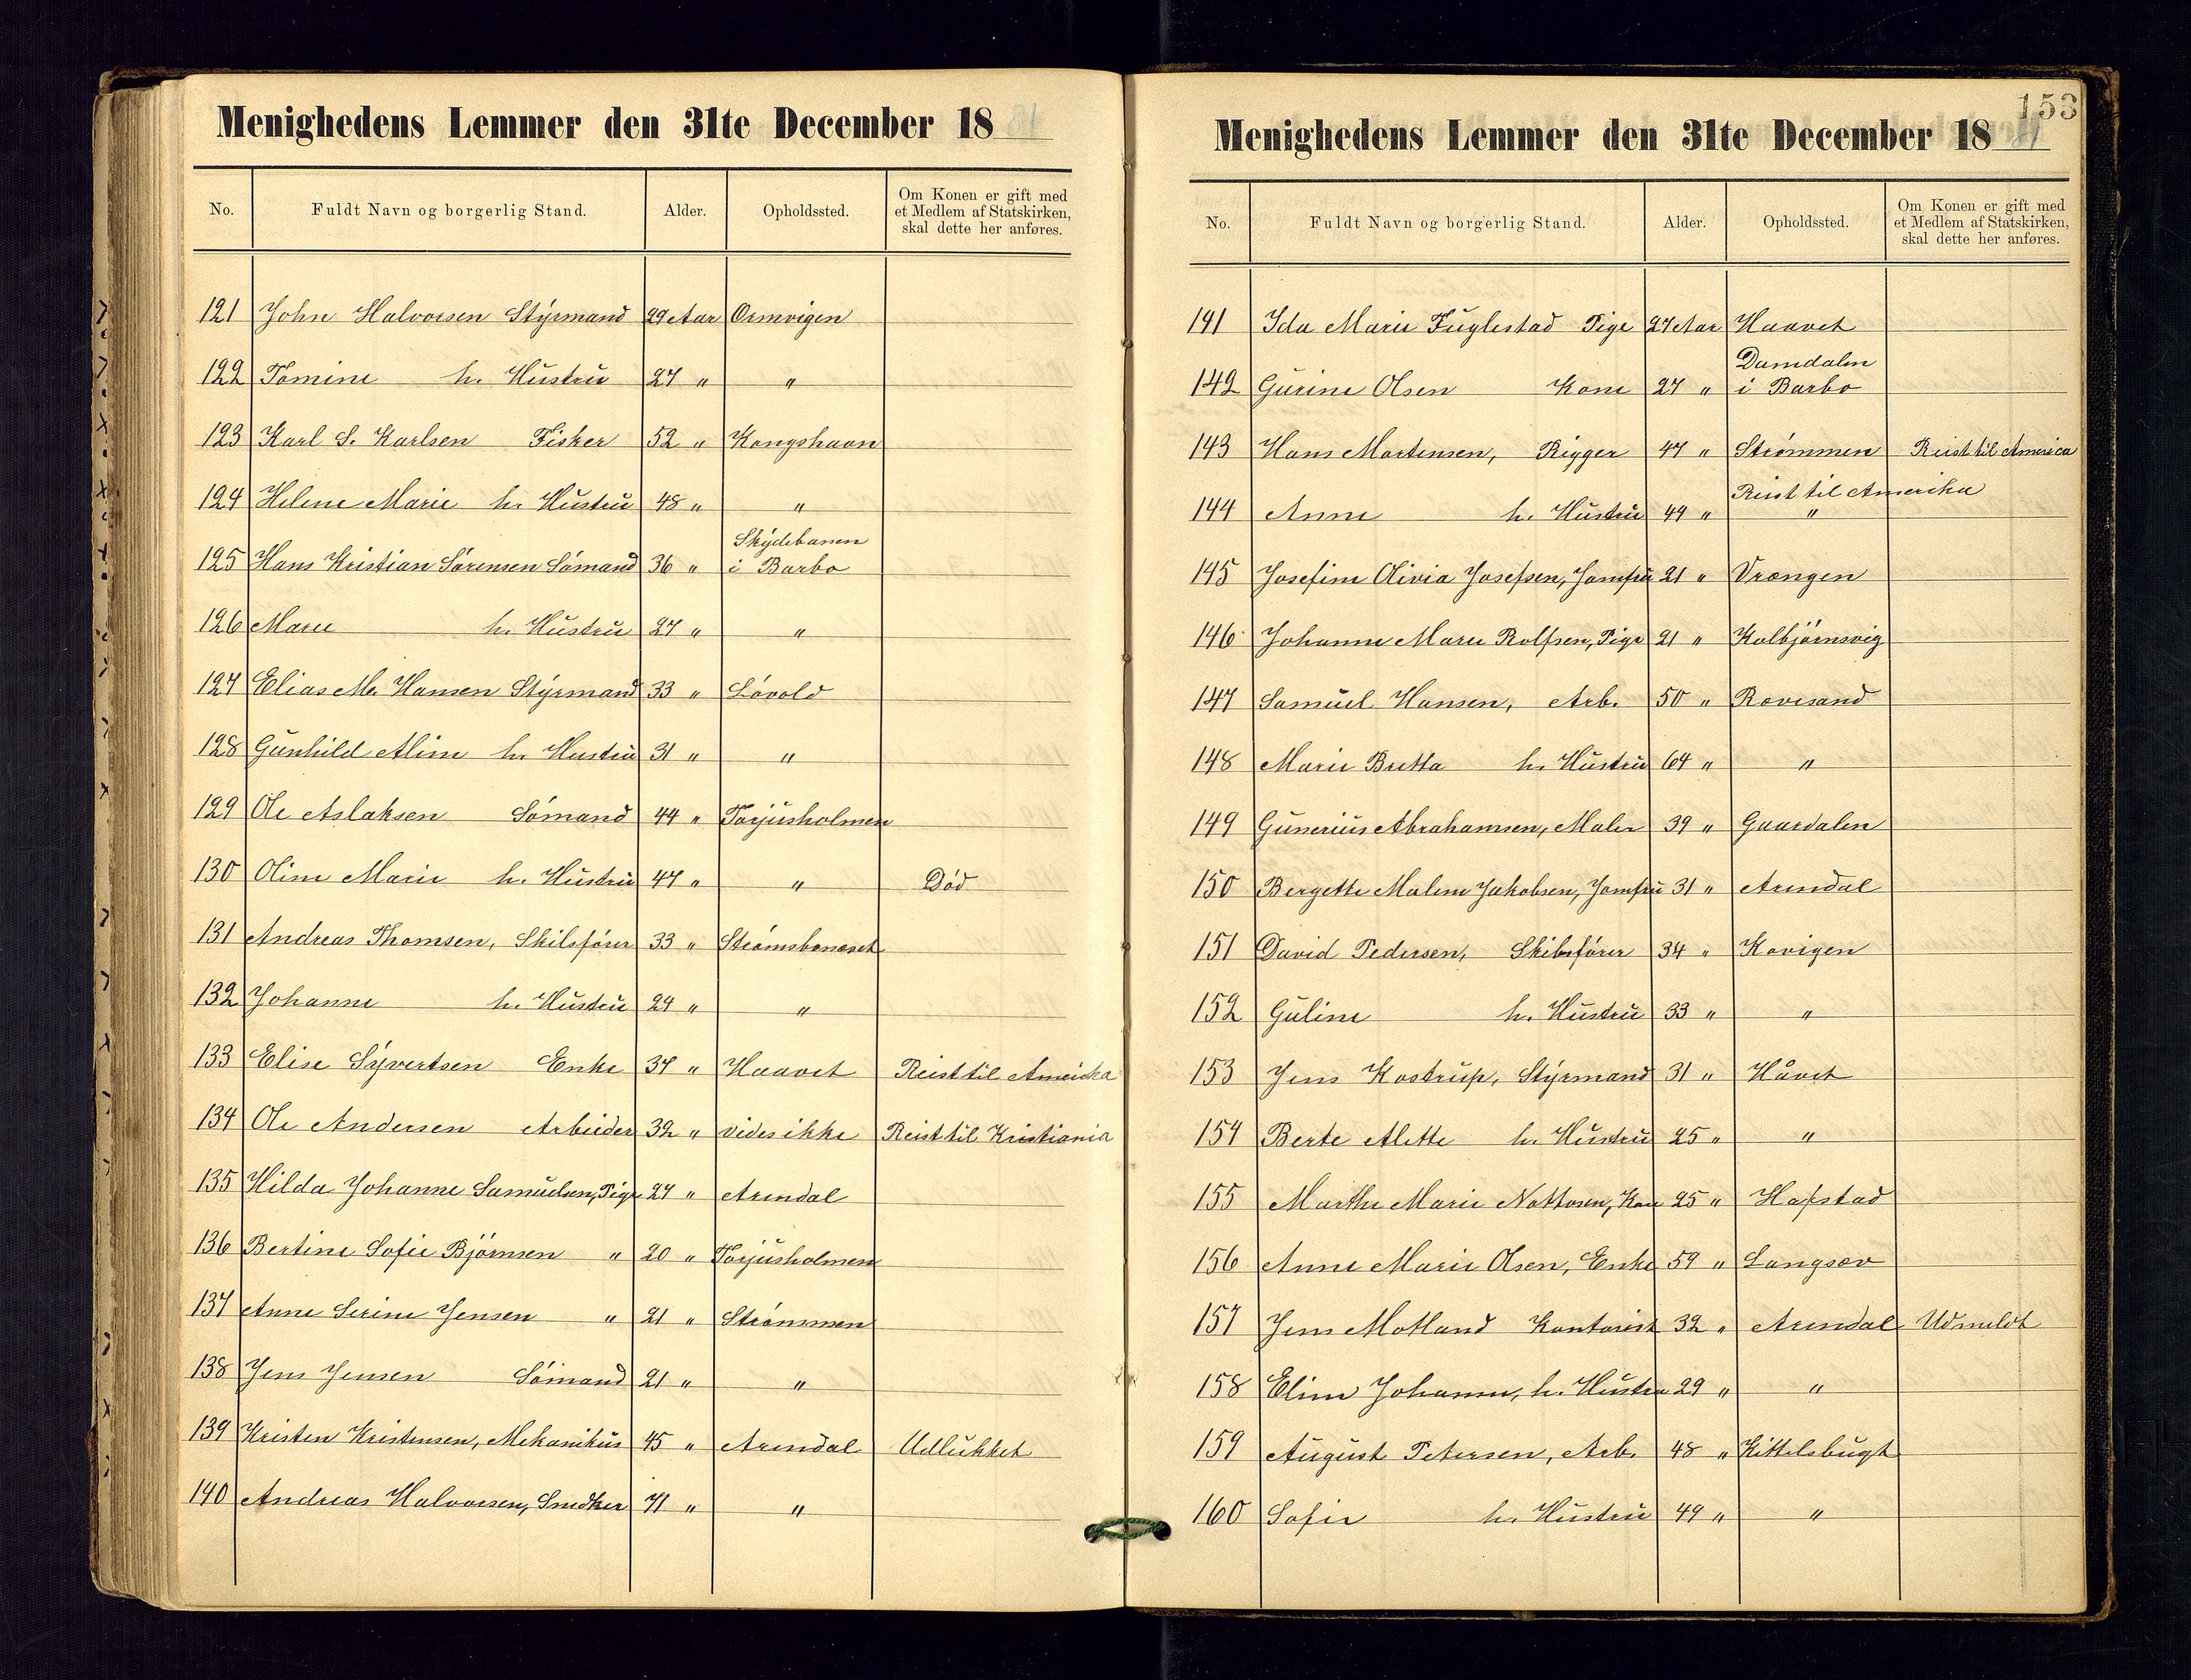 Menighedens Lemmer den 31te December 1881
No. Fuldt Navn og borgerlig Stand. Alder. Opholdssted. Om Konen er gift med et Medlem af Statskirken, skal dette her anføres.
121 John Halvorsen Styrmand 29 Aar Ormvigen
122 Tomine h. Hustru 27 " "
123 Karl S. Karlsen Fisker 52 " Kongshavn
124 Helene Marie h. Hustru 48 " "
125 Hans Kristian Sørensen Sømand 36 " Skydebanen i Barbo
126 Marie h. Hustru 27 " "
127 Elias M. Hansen Styrmand 33 " Løvold
128 Gunhild Aline h. Hustru 31 " "
129 Ole Aslaksen Sømand 44 " Torjusholmen
130 Oline Marie h. Hustru 47 " " Død
131 Andreas Thomsen, Skilsfører 33 " Strømsbonæset
132 Johanne h. Hustru 24 " "
133 Elise Syvertsen Enke 37 " Haavet Reist til Ameicka
134 Ole Andersen Arbeider 32 " vides ikke Reist til Kristiania
135 Hilda Johanne Samuelsen, Pige 27 " Arendal
136 Bertine Sofie Bjørnsen " 20 " Torjusholmen
137 Anne Serine Jensen " 21 " Strømmen
138 Jens Jensen Sømand 21 " "
139 Kristen Kristensen, Mekanikus 45 " Arendal Udlukket
140 Andreas Halvorsen, Snedker 71 " "
153
Menighedens Lemmer den 31te December 1881
No. Fuldt Navn og borgerlig Stand. Alder. Opholdssted. Om Konen er gift med et Medlem af Statskirken, skal dette her anføres.
141 Ida Marie Fuglestad Pige 27 Aar Haavet
142 Gurine Olsen Kone 27 " Damdalen i Barbo
143 Hans Mortensen, Rigger 47 " Strømmen Reist til America
144 Anne h. Hustru 49 " " Reist til Amerika
145 Josefine Olivia Josefsen, Jomfru 21 " Vrængen
146 Johanne Marie Rolfsen, Pige 21 " Kolbjørnsvig
147 Samuel Hansen, Arb. 50 " Rævesand
148 Marie Britta h. Hustru 64 " "
149 Gunerius Abrahamsen, Maler 39 " Gaardalen
150 Bergette Malene Jakobsen, Jomfru 31 " Arendal
151 David Pedersen, Skibsfører 34 " Kovigen
152 Guline h. Hustru 33 " "
153 Jens Kostrup, Styrmand 31 " Håvet
154 Berte Alette h. Hustru 25 " "
155 Marthe Marie Nottosen, Kone 25 " Hafstad
156 Anne Marie Olsen, Enke 59 " Langsæv
157 Jens Motland Kontorist 32 " Arendal Udmeldt
158 Eline Johanne, h. Hustru 29 " "
159 August Petersen, Arb. 48 " Kittelsbugt
160 Sofie h. Hustru 49 " "